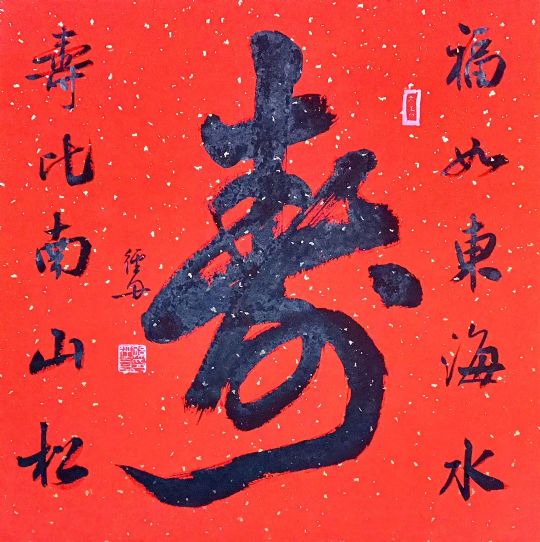 福如東海水
壽
壽比南山松